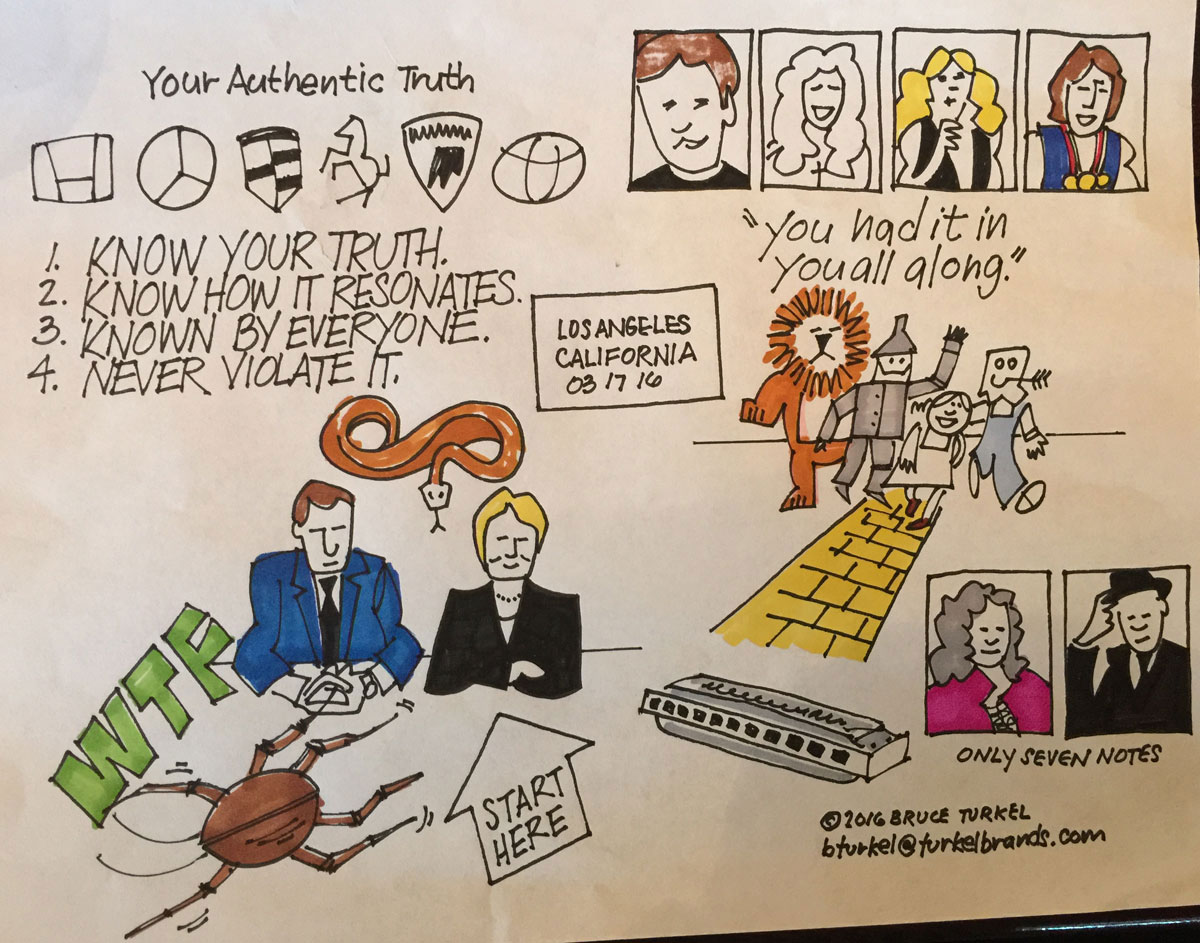 Your Authentic Truth
1. KNOW YOUR TRUTH.
2. KNOW HOW IT RESONATES.
3. KNOWN BY EVERYONE.
4. NEVER VIOLATE IT.
LOS ANGELES
CALIFORNIA
03 17 16
"You had it in
you all along."
WTF
START
HERE
ONLY SEVEN NOTES
©2016 BRUCE TURKEL
bturkel@turkelbrands.com